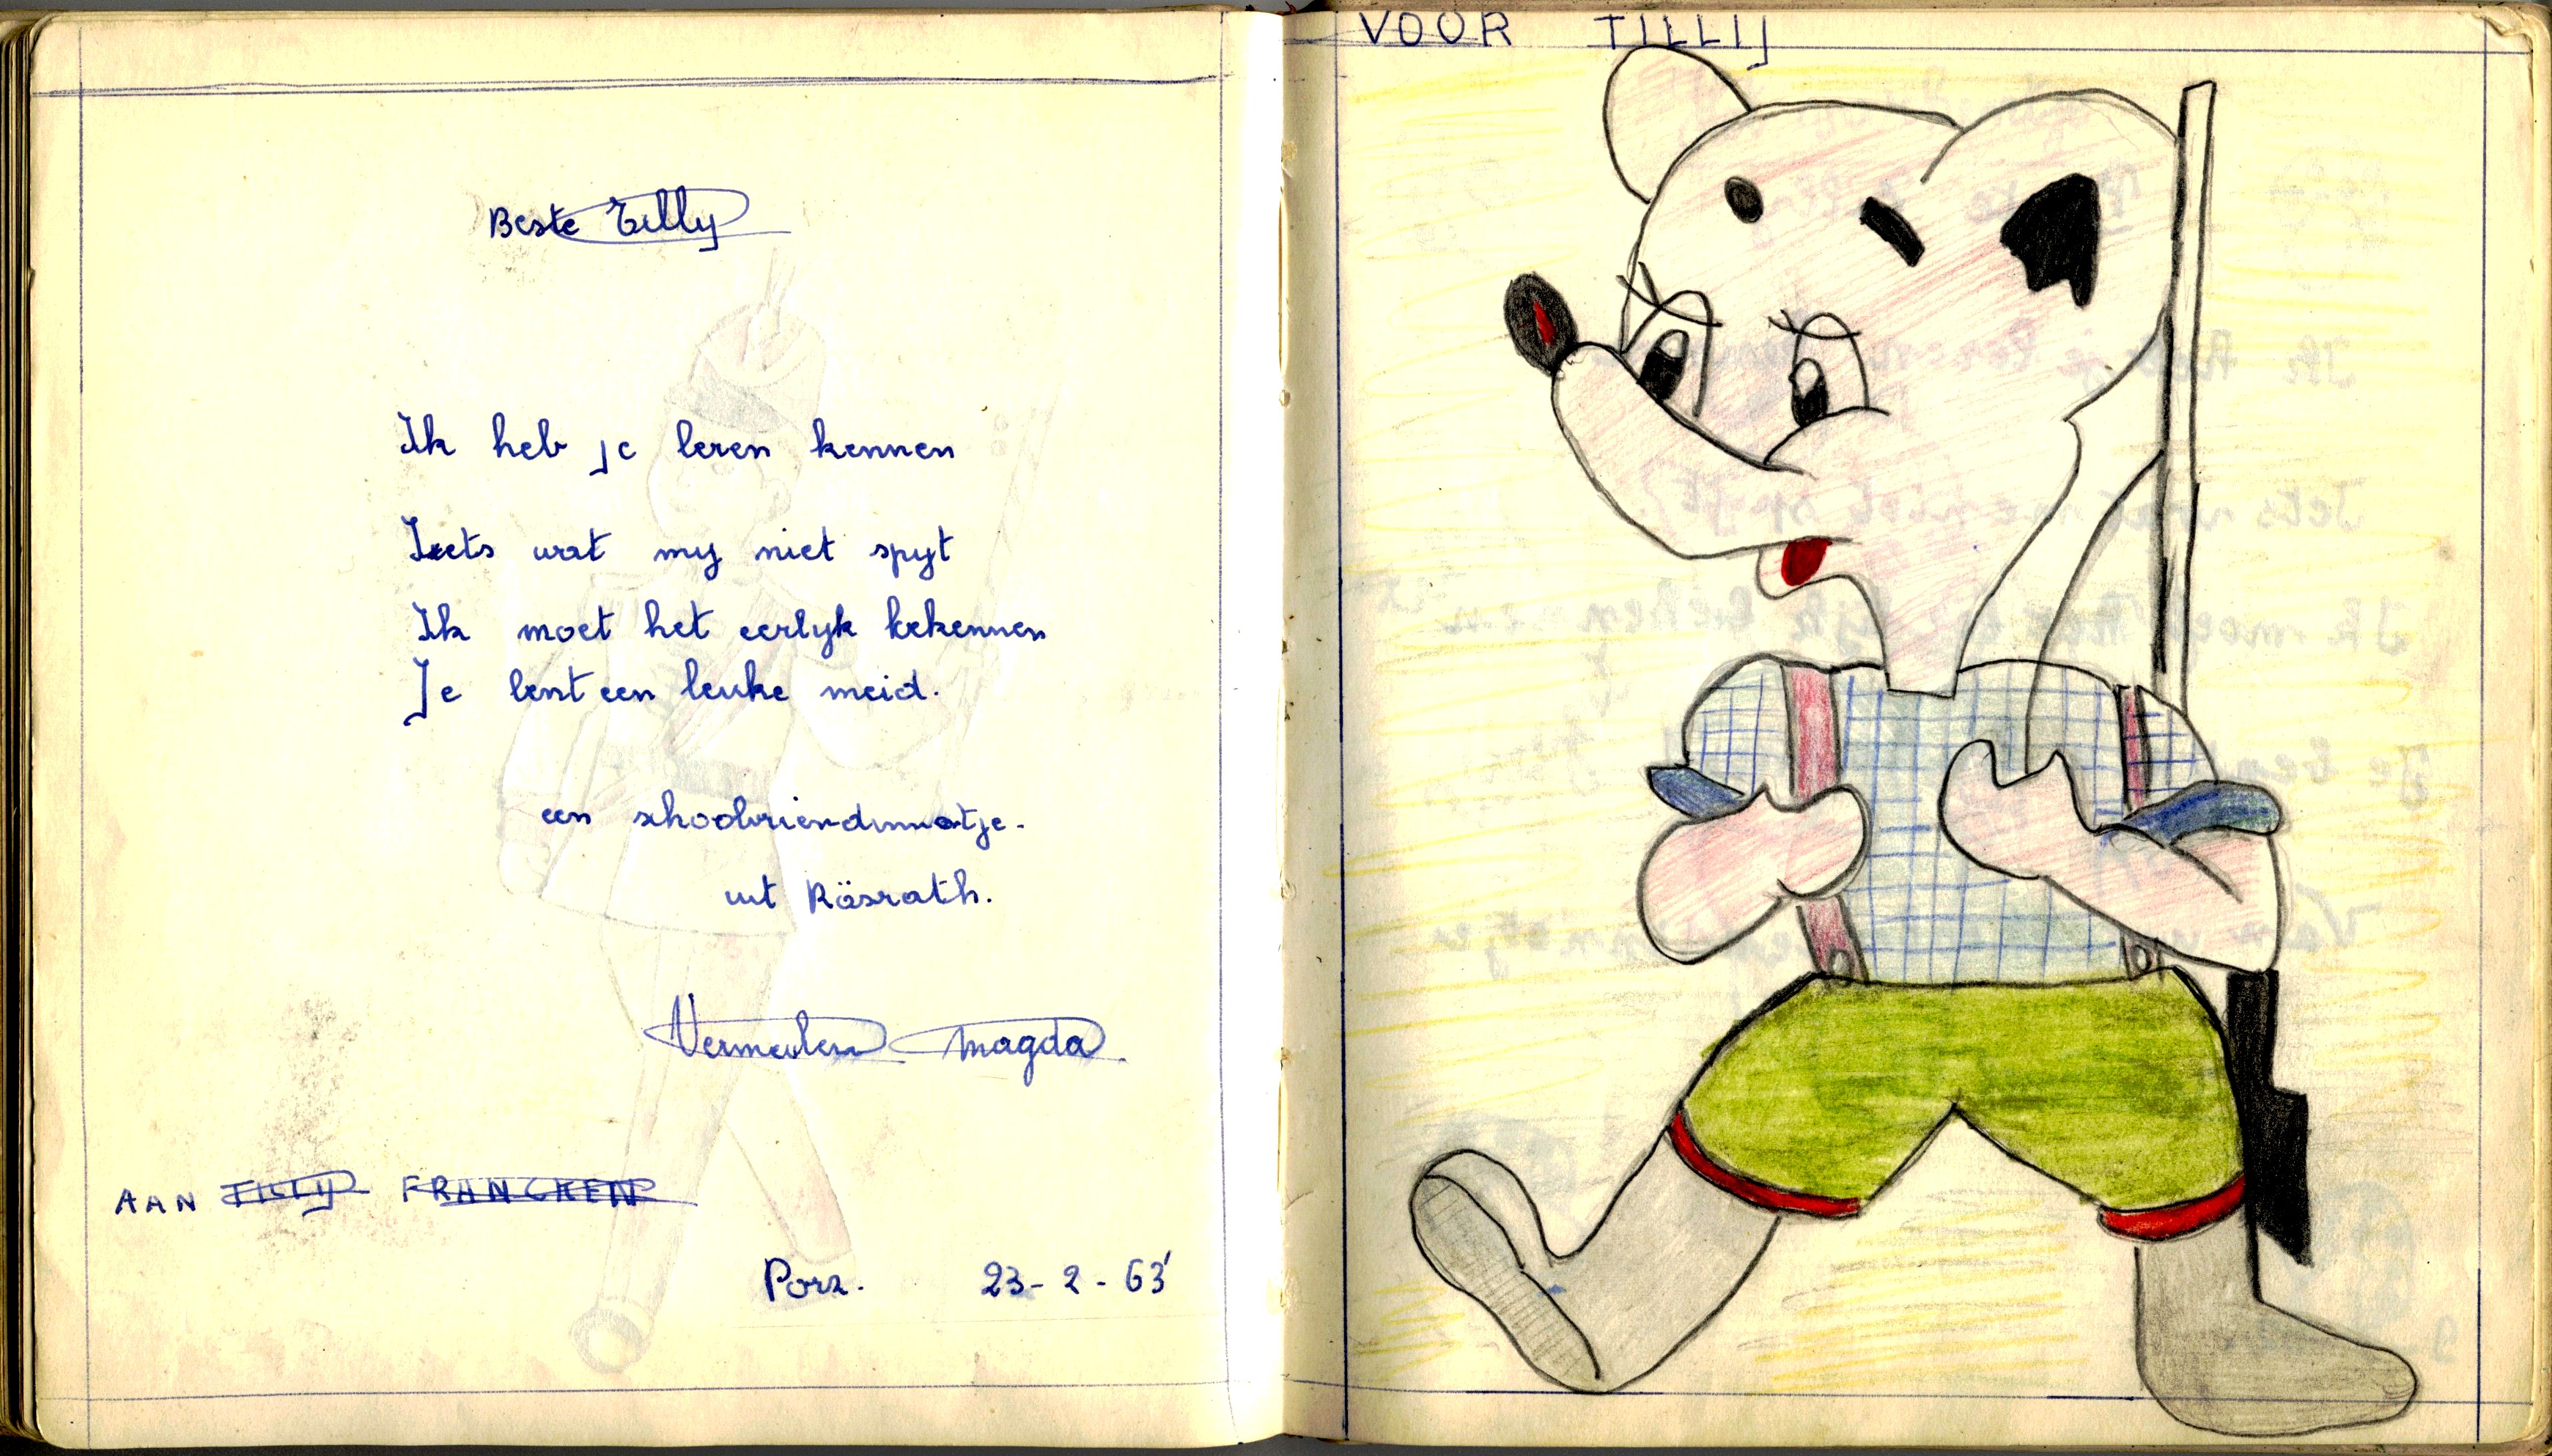 Beste Tilly
Ik heb je leren kennen
Iets wat my niet spyt
Ik moet het eerlyk bekennen
Je bent een leuke meid.
een schoolvriendinnetje.
uit Rösrath.
Vermeulen Magda
AAN TILLY FRANCKEN
Porz. 23-2-63'
VOOR TILLIJ